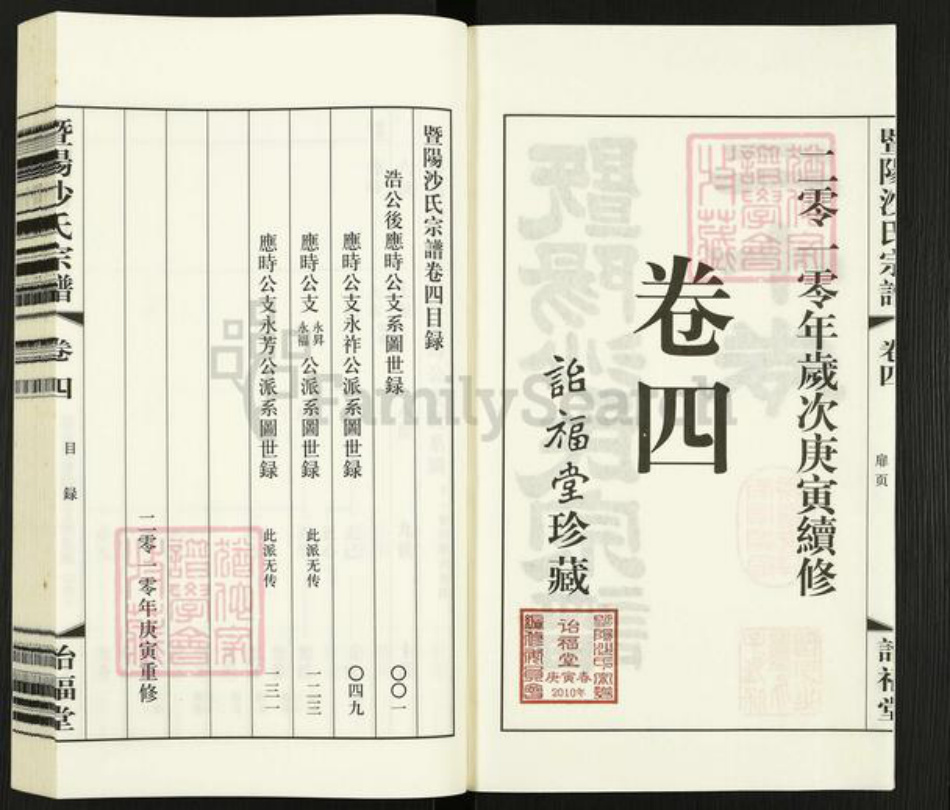 二零一零年歲次庚寅續修
卷四
詒福堂珍藏
诒福堂
庚寅春
2010年
暨陽沙氏宗譜
卷四
扉页
詒福堂
暨陽沙氏宗譜卷四目録
浩公後應時公支系圖世録 〇〇一
應時公支永祚公派系圖世録 〇四九
應時公支永昇永福公派系圖世録 此派无传 一二三
應時公支永芳公派系圖世録 此派无传 一三一
二零一零年庚寅重修
暨陽沙氏宗譜
卷四
目録
詒福堂
FamilySearch